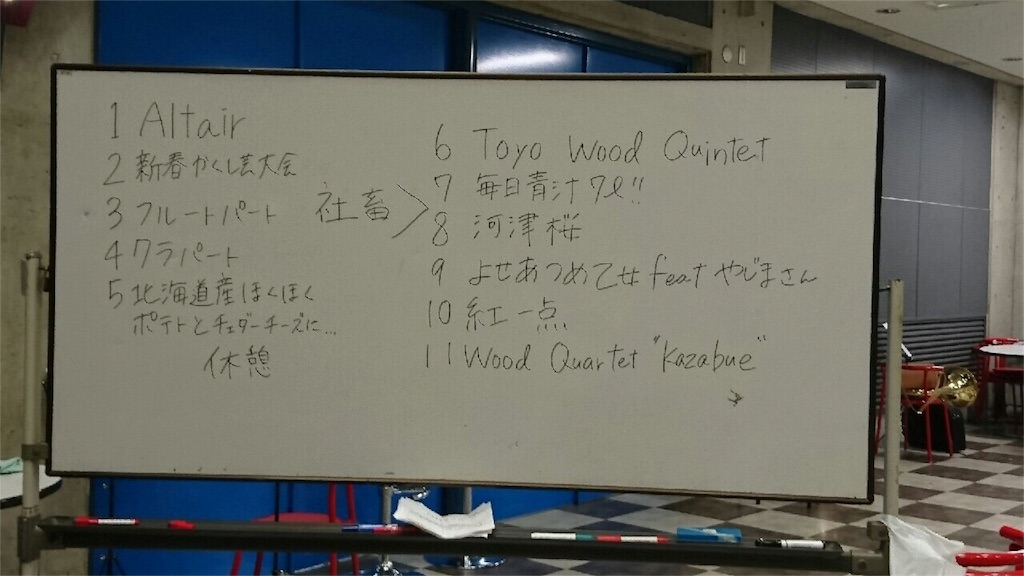 1 Altair
2 新春かくし芸大会
3 フルートパート
4 クラパート
5 北海道産ほくほく
ポテトとチェダーチーズに...
休憩
社畜
6 Toyo Wood Quintet
7 毎日青汁7ℓ!!
8 河津桜
9 よせあつめ乙女 feat やじまさん
10 紅一点
11 Wood Quartet "Kazabue"